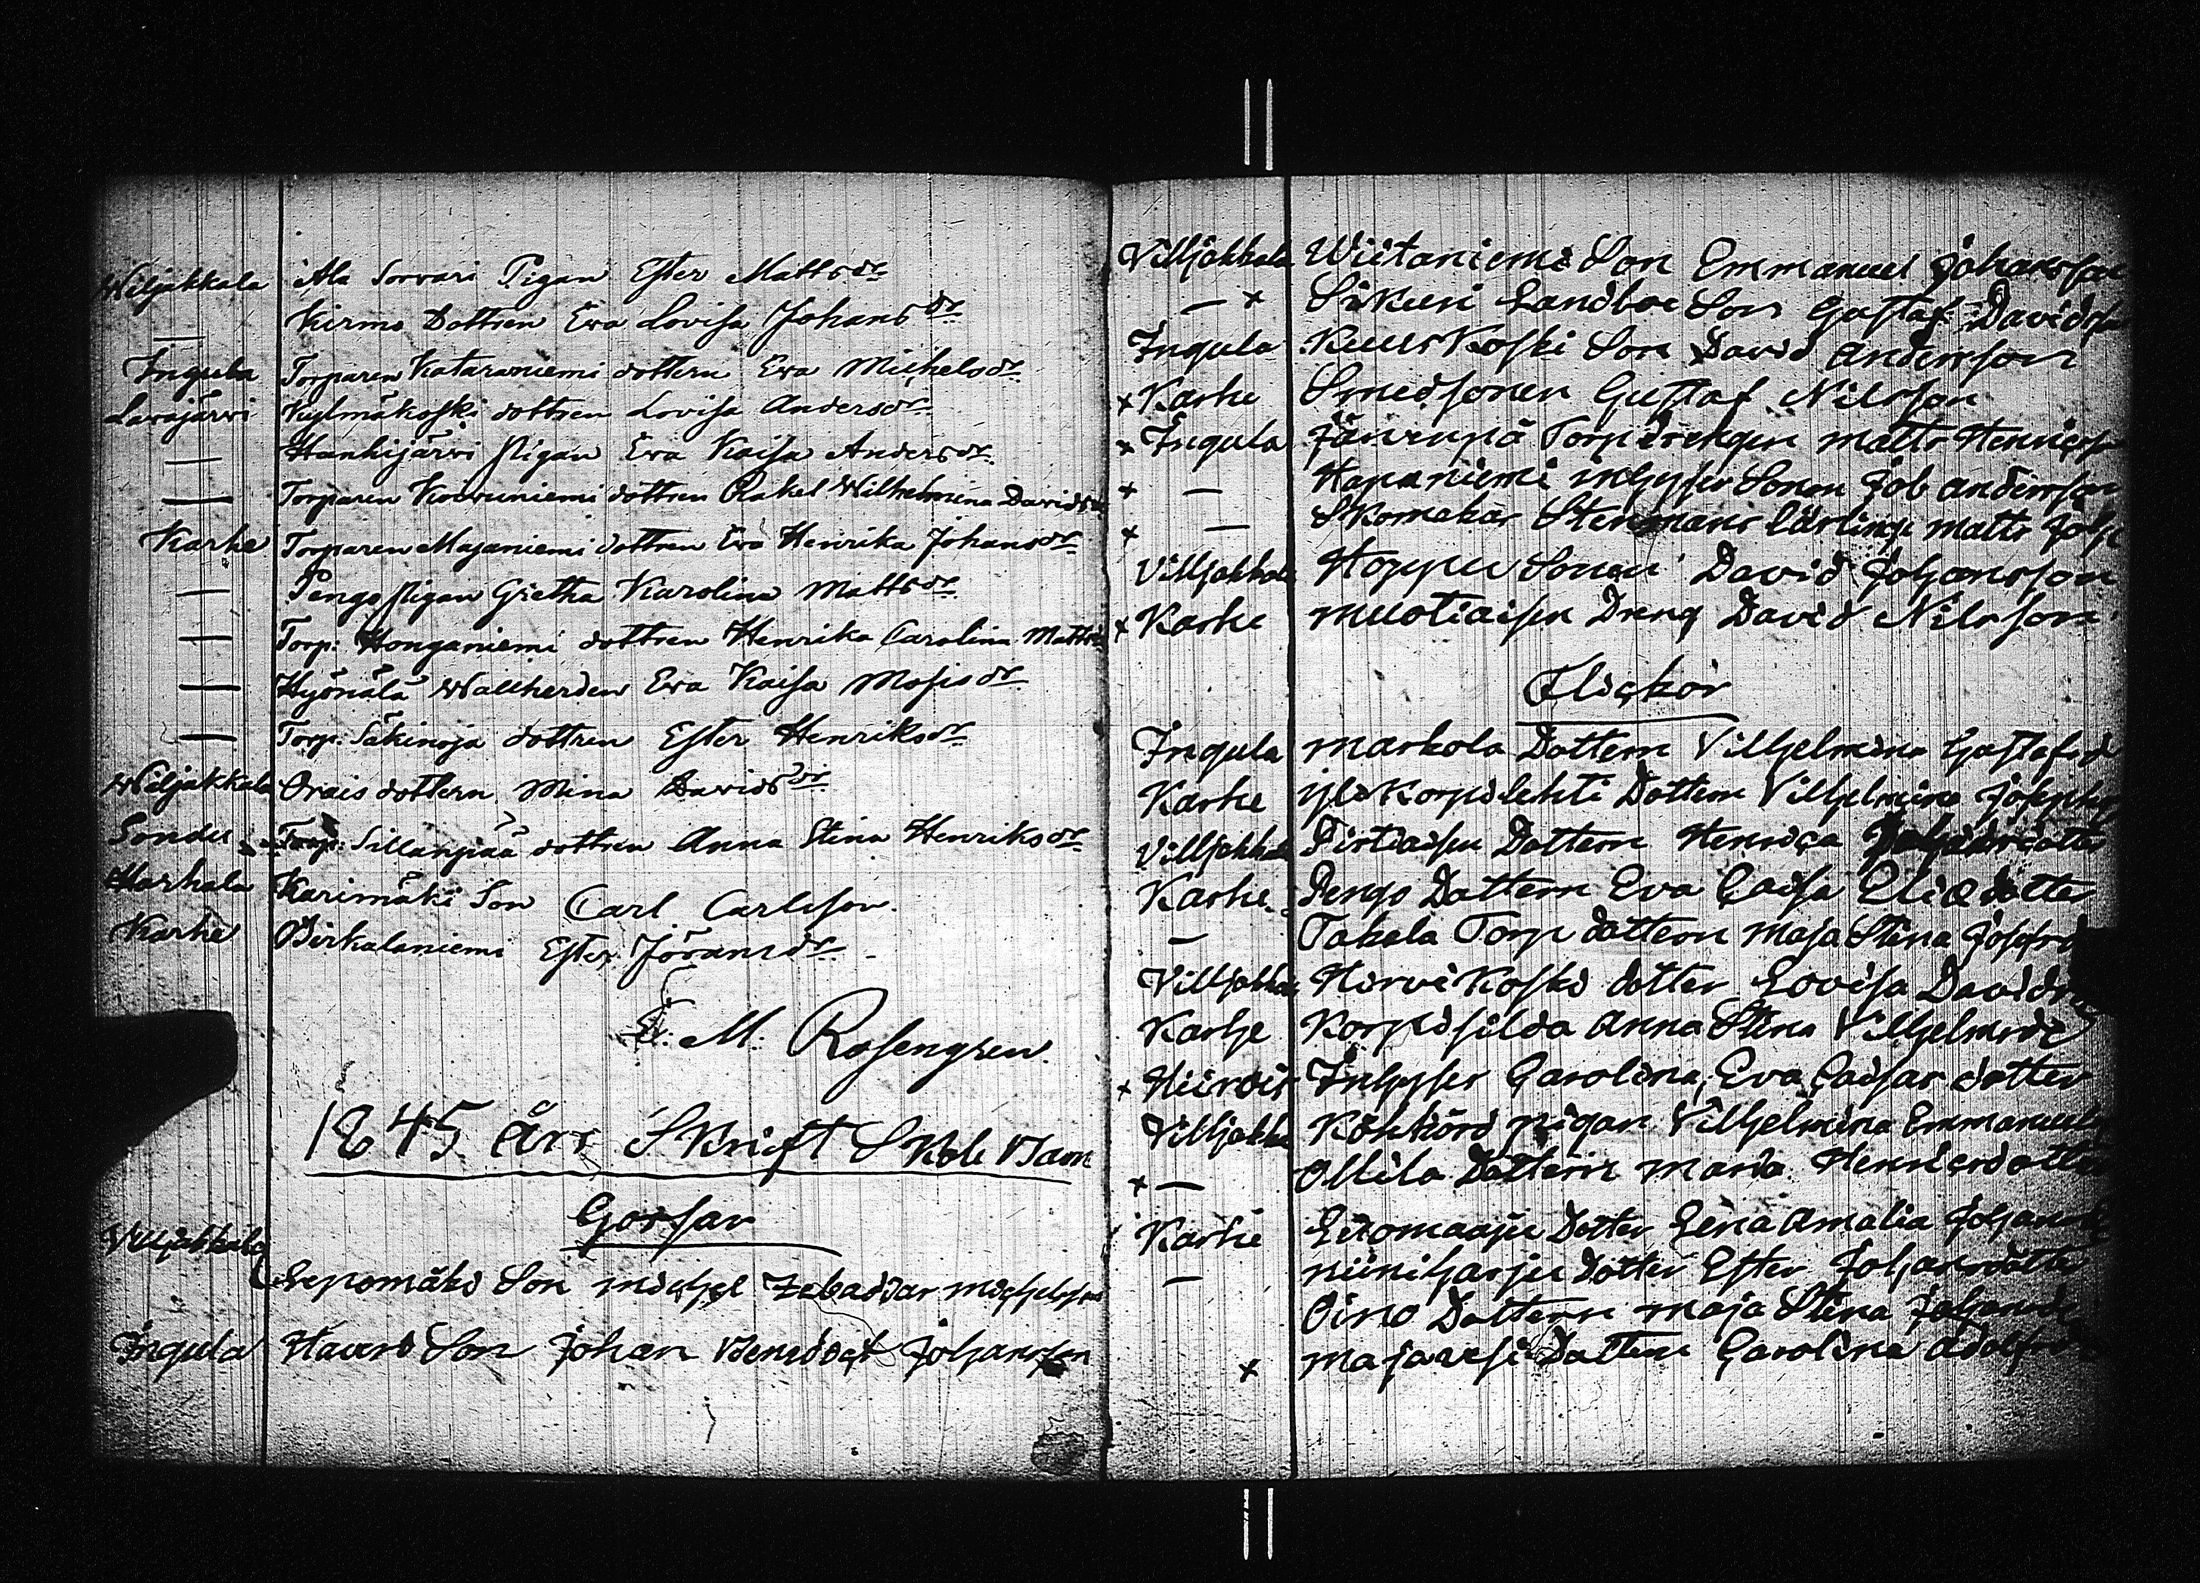 Wiljakkala Ala Sorvari Pigan Ester Mattsdr
— Kirmo Dottren Eva Lovisa Johansdr
Ingula Torparen Kataraniemi dottern Eva Michelsdr
Lavajärvi Kylmäkoski dottren Lovisa Andersdr
— Hanhijärvi Pigan Eva Kaisa Andersdr
— Torparen Koivuniemi dottren Rakel Wilhelmina Davidsdr
Karhe Torparen Majaniemi dottren Eva Henrika Johansdr
— Pengo Pigan Gretha Karolina Mattsdr
— Torp: Honganiemi dottren Henrika Carolina Mattsdr
— Hyönälä Wallherden Eva Kaisa Mosisdr
— Torp: Säkinoja dottren Ester Henriksdr
Wiljakkala Orais dottern Mina Davidsdr
Sondu Torp: Sillanpää dottren Anna Stina Henriksdr
Harhala Harimäki Son Carl Carlsson
Karhe Pirkalaniemi Ester Jöransdr
E. M. Rosengren.
1845 års Skrift Skole Barn
Gossar
Villjakkala Lepomäki Son Michel Zebadiar Michelsson
Ingula Hauro Son Johan Benedict Johansson
Villjakkala Wiitaniemi Son Emmanuel Johansson
— x Siukuri Landboe Son Gustaf Davidss
Ingula Kuuskoski Son David Andersson
x Karhe Smedsonen Gustaf Nilsson
x Ingula Järvenpä Torp Drengen Matts Henricss
x — Hapaniemi inhyses Sonen Job Andersson
x — Skomakar Stenmans lärling Matts Joh
Villjakkala Hoppu Sonen David Johansson
x Karhe Muotiaisen Dreng David Nilsson
Flickor
Ingula Markola Dottern Vilhelmina Gustafsd
Karhe yliKorpilehti Dottern Vilhelmina Josephs
Villjakkala Pirtiaisen Dottern Henrica
Karhe Pengo Dottern Eva Caisa Elis dotter
— Takala Torp dottern Maja Stina Josefsd
Villjakkala Hirvikoski dotter Lovisa Davids
Karhe Korpisilda Anna Stina Vilhelmsdr
x Hiirvis Inhyses Carolina Eva Caisas dotter
Villjakkala Kökkörö pigan Vilhelmina Emmanuels
x — Ollila Dottern Maria Henricsdotter
Karhe Leromaaju Dotter Lena Amalia Johansd
— Niiniharju Dotter Ester Johansdotter
Oino Dottern Maja Stina Johansd
x Majavesi Dottern Carolina Adolfsd